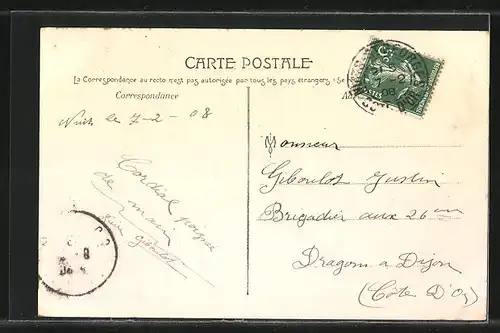 CARTE POSTALE
La Correspondance au recto n'est pas autorisée par tous les pays étrangers (Se
Correspondance
Nuits le 7-2-08
Cordiale poignée
de main
Giboulot
Monsieur
Giboulot Justin
Brigadier aux 26 em
Dragons a Dijon
(Côte D'Or)